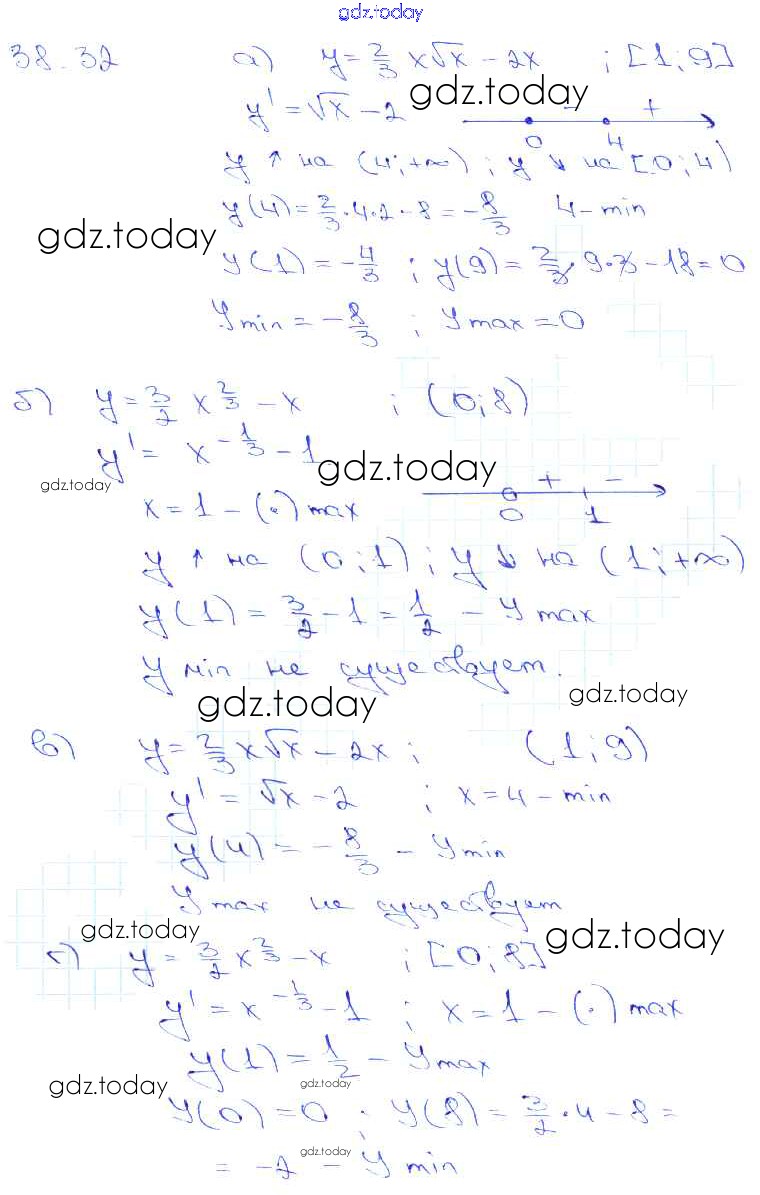 gdz.today
38.32 а) y = 2/3 x√x - 2x ; [1; 9]
y' = √x - 2
gdz.today
- +
0 4
y ↑ на (4; +∞) ; y ↓ на [0; 4)
y(4) = 2/3 · 4 · 2 - 8 = -8/3 4 - min
gdz.today
y(1) = -4/3 ; y(9) = 2/3 · 9 · 3 - 18 = 0
y min = -8/3 ; y max = 0
б) y = 3/2 x^(2/3) - x ; (0; 8)
y' = x^(-1/3) - 1
gdz.today
gdz.today
+ -
0 1
x = 1 - (·) max
y ↑ на (0; 1) ; y ↓ на (1; +∞)
y(1) = 3/2 - 1 = 1/2 - y max
y min не существует.
gdz.today
gdz.today
в) y = 2/3 x√x - 2x ; (1; 9)
y' = √x - 2 ; x = 4 - min
y(4) = -8/3 - y min
y max не существует
gdz.today
gdz.today
г) y = 3/2 x^(2/3) - x ; [0; 8]
y' = x^(-1/3) - 1 ; x = 1 - (·) max
y(1) = 1/2 - y max
gdz.today
gdz.today
y(0) = 0 ; y(8) = 3/2 · 4 - 8 =
gdz.today
= -2 - y min